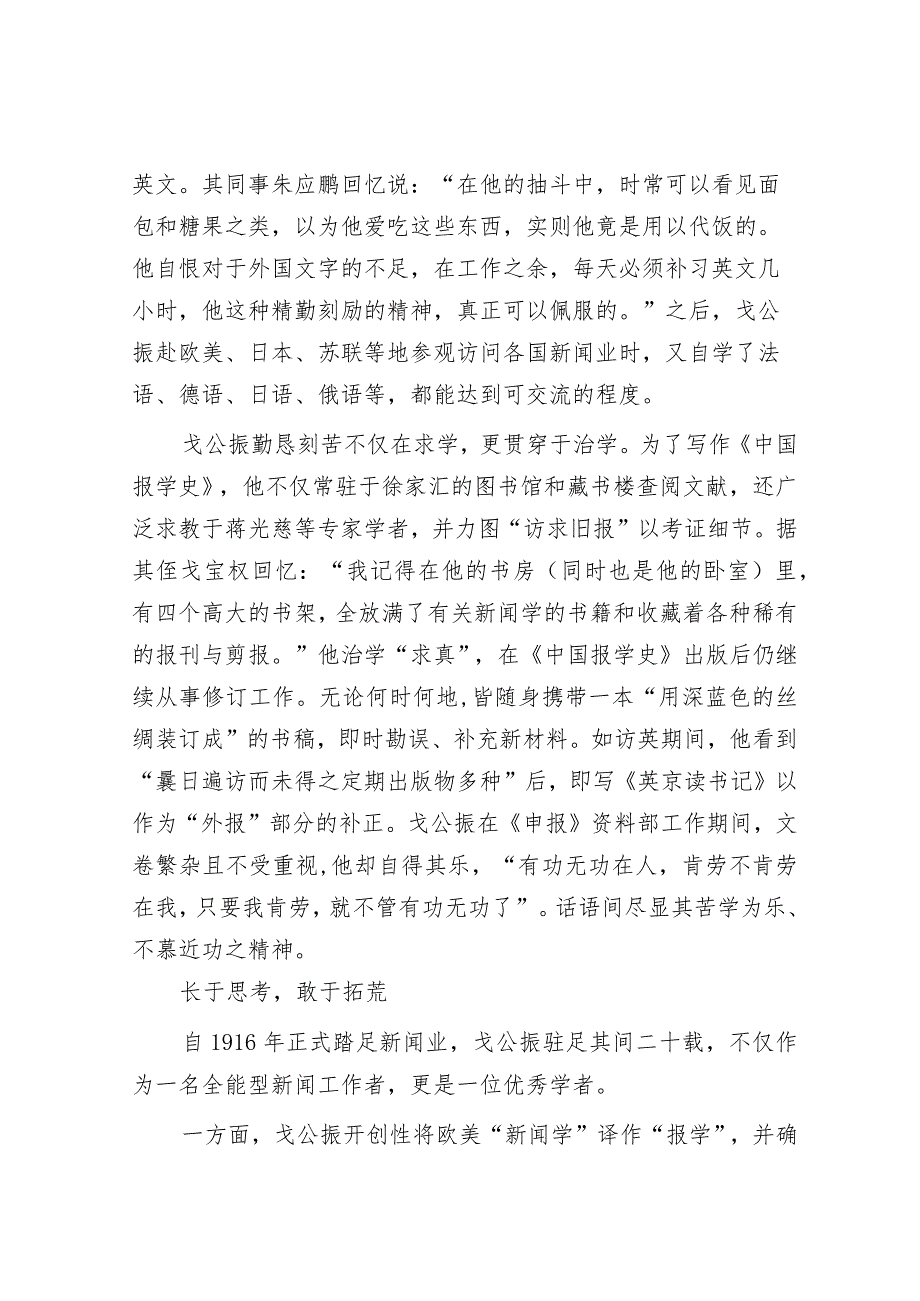 英文。其同事朱应鹏回忆说：“在他的抽斗中，时常可以看见面
包和糖果之类，以为他爱吃这些东西，实则他竟是用以代饭的。
他自恨对于外国文字的不足，在工作之余，每天必须补习英文几
小时，他这种精勤刻励的精神，真正可以佩服的。”之后，戈公
振赴欧美、日本、苏联等地参观访问各国新闻业时，又自学了法
语、德语、日语、俄语等，都能达到可交流的程度。
戈公振勤恳刻苦不仅在求学，更贯穿于治学。为了写作《中国
报学史》，他不仅常驻于徐家汇的图书馆和藏书楼查阅文献，还广
泛求教于蒋光慈等专家学者，并力图“访求旧报”以考证细节。据
其侄戈宝权回忆：“我记得在他的书房（同时也是他的卧室）里，
有四个高大的书架，全放满了有关新闻学的书籍和收藏着各种稀有
的报刊与剪报。”他治学“求真”，在《中国报学史》出版后仍继
续从事修订工作。无论何时何地,皆随身携带一本“用深蓝色的丝
绸装订成”的书稿，即时勘误、补充新材料。如访英期间，他看到
“曩日遍访而未得之定期出版物多种”后，即写《英京读书记》以
作为“外报”部分的补正。戈公振在《申报》资料部工作期间，文
卷繁杂且不受重视,他却自得其乐，“有功无功在人，肯劳不肯劳
在我,只要我肯劳,就不管有功无功了”。话语间尽显其苦学为乐、
不慕近功之精神。
长于思考，敢于拓荒
自1916年正式踏足新闻业，戈公振驻足其间二十载，不仅作
为一名全能型新闻工作者，更是一位优秀学者。
一方面，戈公振开创性将欧美“新闻学”译作“报学”，并确